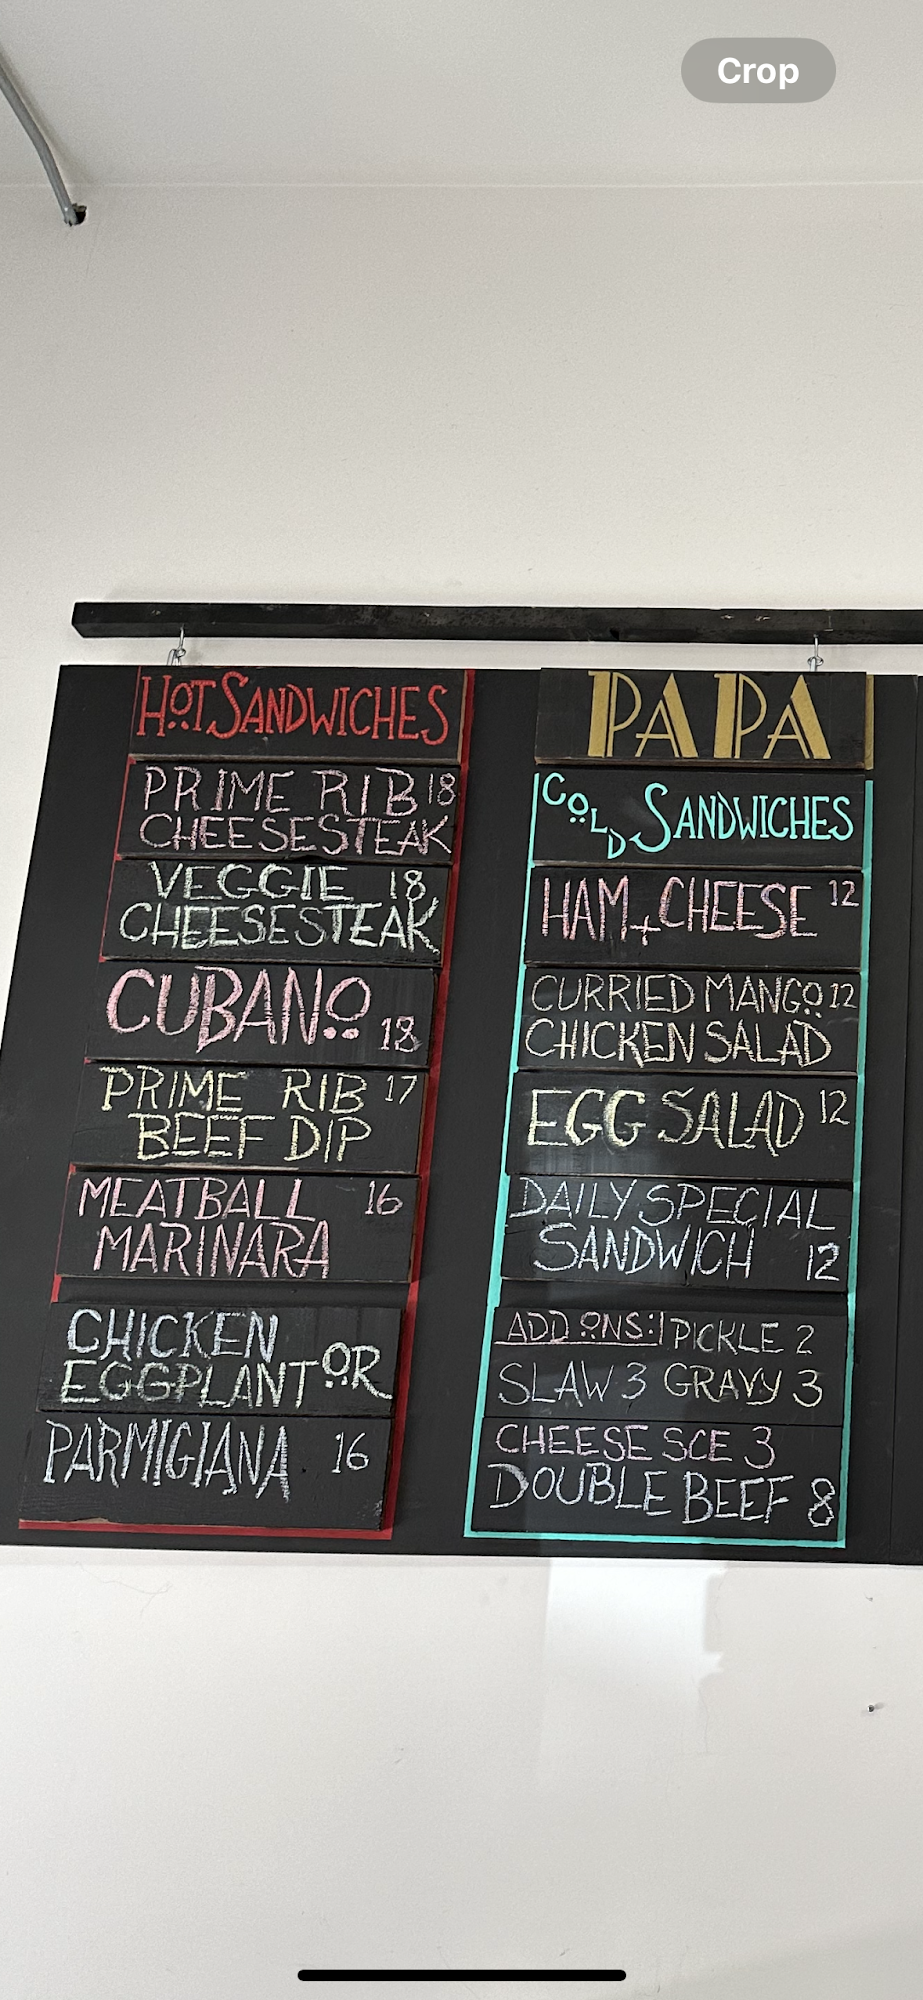 Crop
HOT SANDWICHES
PRIME RIB 18
CHEESESTEAK
VEGGIE 18
CHEESESTEAK
CUBANO
18
PRIME RIB 17
BEEF DIP
MEATBALL 16
MARINARA
CHICKEN
EGGPLANT OR
PARMIGIANA 16
PAPA
COLD SANDWICHES
HAM + CHEESE 12
CURRIED MANGO 12
CHICKEN SALAD
EGG SALAD 12
DAILY SPECIAL
SANDWICH 12
ADD ONS: PICKLE 2
SLAW 3 GRAVY 3
CHEESE SCE 3
DOUBLE BEEF 8